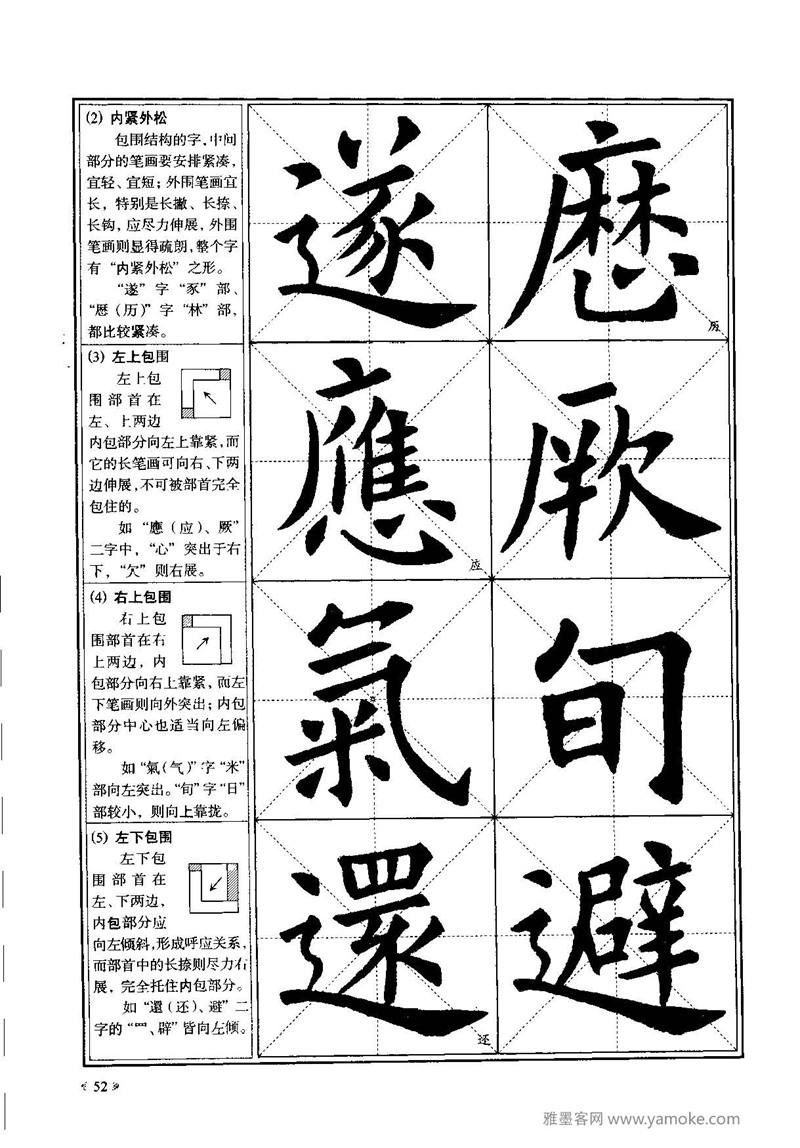 (2) 内紧外松
包围结构的字,中间
部分的笔画要安排紧凑,
宜轻、宜短;外围笔画宜
长,特别是长撇、长捺、
长钩,应尽力伸展,外围
笔画则显得疏朗,整个字
有“内紧外松”之形。
“遂”字“豕”部、
“厯(历)”字“林”部,
都比较紧凑。
遂 厯
历
(3) 左上包围
左上包
围部首在
左、上两边
内包部分向左上靠紧,而
它的长笔画可向右、下两
边伸展,不可被部首完全
包住的。
如“應(应)、厥”
二字中,“心”突出于右
下,“欠”则右展。
應 厥
应
(4) 右上包围
右上包
围部首在右
上两边,内
包部分向右上靠紧,而左
下笔画则向外突出;内包
部分中心也适当向左偏
移。
如“氣(气)”字“米”
部向左突出。“旬”字“日”
部较小,则向上靠拢。
氣 旬
(5) 左下包围
左下包
围部首在
左、下两边,
内包部分应
向左倾斜,形成呼应关系,
而部首中的长捺则尽力右
展,完全托住内包部分。
如“還(还)、避”二
字的“罒、辟”皆向左倾。
還 避
还
52
雅墨客网 www.yamoke.com